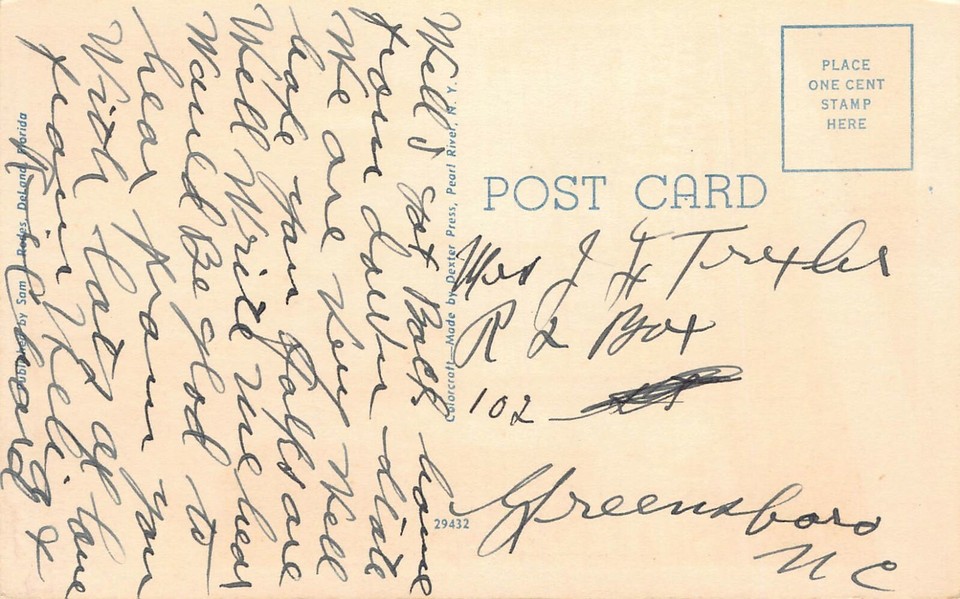 Well I Got Back home
from down state
We are Very Well
hope you folks are
Well Write me
Would Be glad to
hear from you
With lots of love
from
PLACE
ONE CENT
STAMP
HERE
POST CARD
Mrs J F Trexler
R 2 Box
102
Greensboro
N C
29432
Colorcraft—Made by Dexter Press, Pearl River, N. Y.
Published by Sam Roles, DeLand, Florida